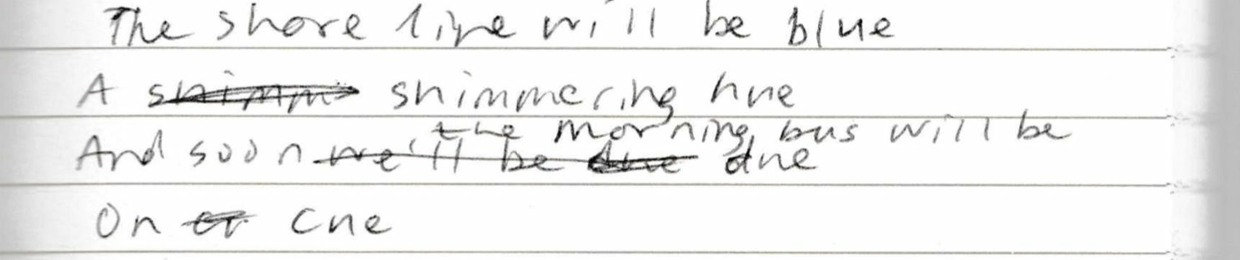 The shore line will be blue
A shimm shimmering hue
the morning bus will be
And soon we'll be due due
On cue